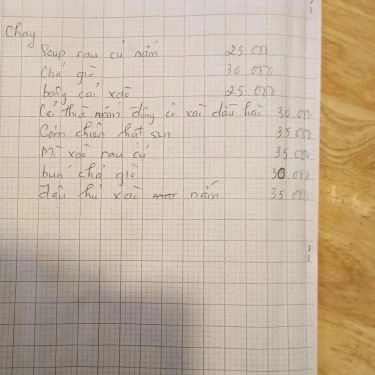 Chay
Soup rau củ nấm 25 000
Chả giò 30 000
bông cải xào 25 000
Cải thìa nấm đông cô xào dầu hào 30 000
Cơm chiên hạt sen 35 000
Mì xào rau củ 35 000
bún chả giò 30 000
đậu hủ xào nấm 35 000